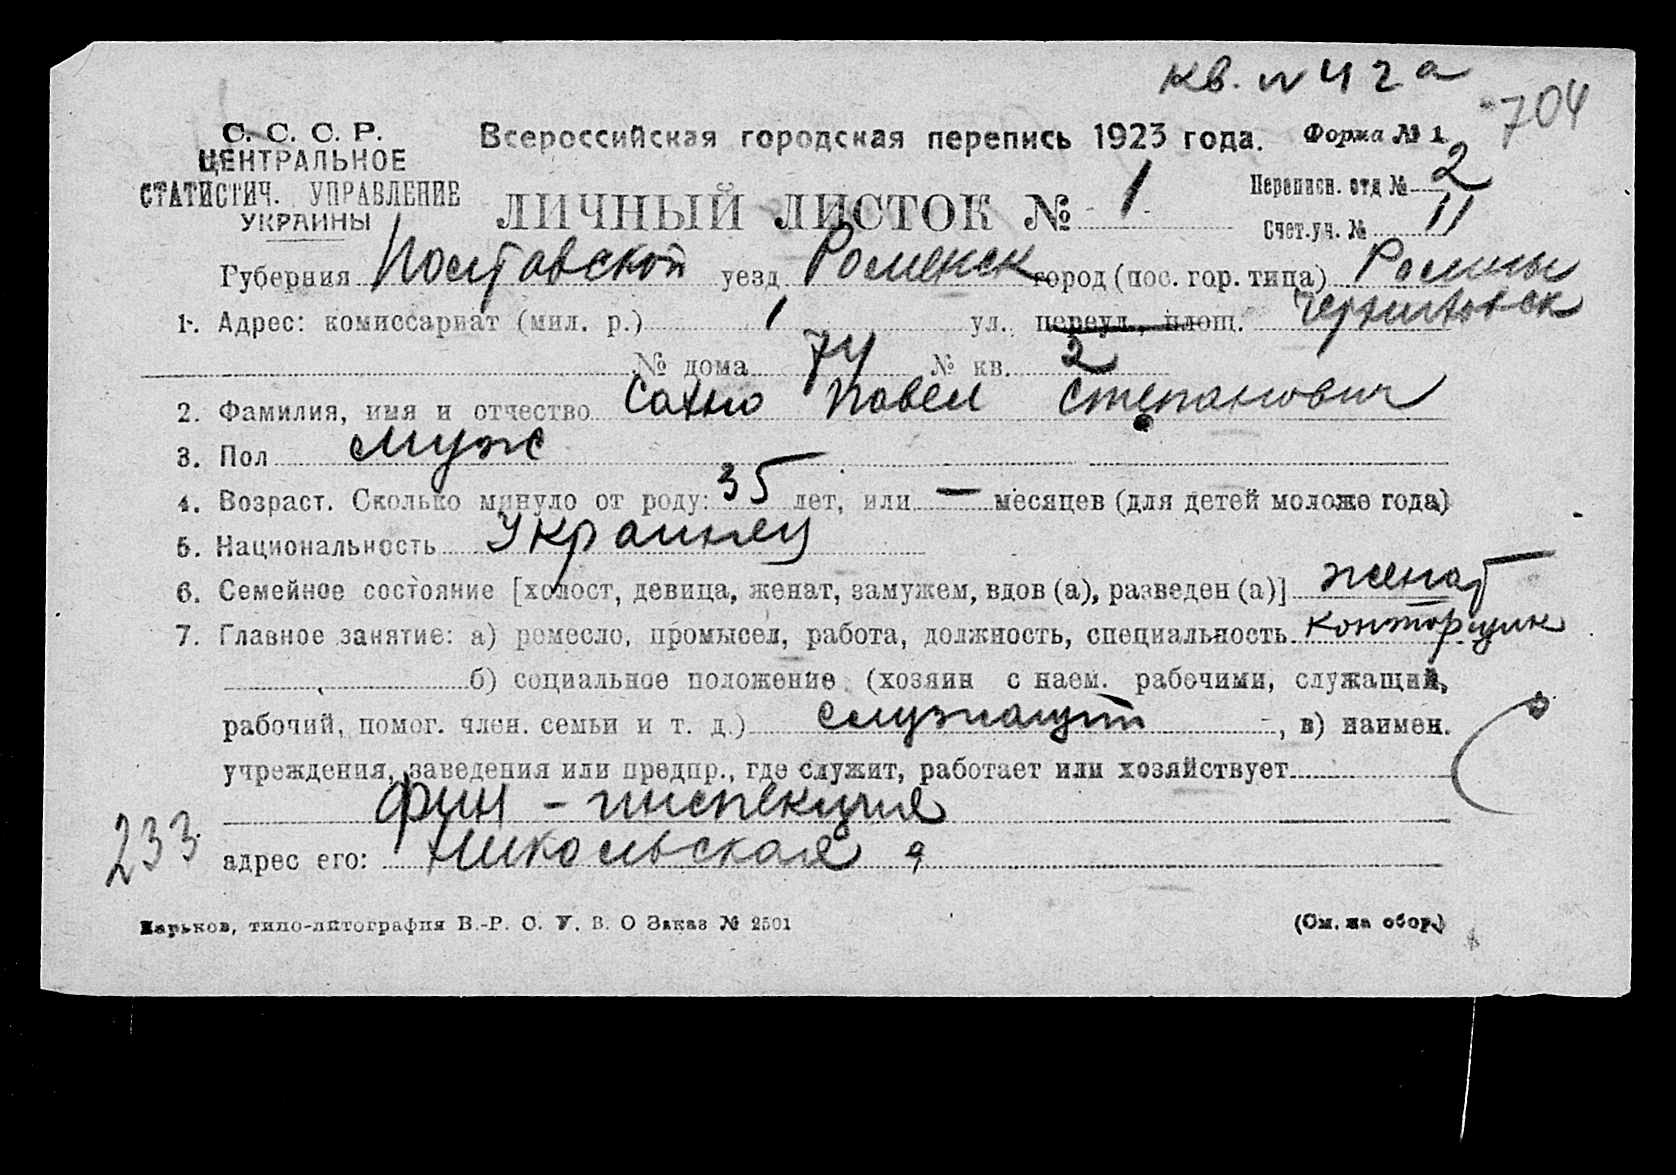 кв. N 42а
704
С. С. С. Р.
ЦЕНТРАЛЬНОЕ
СТАТИСТИЧ. УПРАВЛЕНИЕ
УКРАИНЫ
Всероссийская городская перепись 1923 года. Форма № 1
ЛИЧНЫЙ ЛИСТОК № 1
Переписн. отд № 2
Счет.уч. № 11
Губерния Полтавской уезд Роменск город (пос. гор. типа) Ромны
1. Адрес: комиссариат (мил. р.) 1 ул. переул., площ. Черниговск
№ дома 74 № кв. 2
2. Фамилия, имя и отчество Сахно Павел Степанович
3. Пол муж
4. Возраст. Сколько минуло от роду: 35 лет, или — месяцев (для детей моложе года)
5. Национальность Украинец
6. Семейное состояние [холост, девица, женат, замужем, вдов (а), разведен (а)] женат
7. Главное занятие: а) ремесло, промысел, работа, должность, специальность конторщик
б) социальное положение (хозяин с наем. рабочими, служащий,
рабочий, помог. член. семьи и т. д.) служащий, в) наимен.
учреждения, заведения или предпр., где служит, работает или хозяйствует
фин - инспекция
233
адрес его: Никольская 9
Харьков, типо-литография В.-Р. С. У. В. О Заказ № 2501
(См. на обор.)